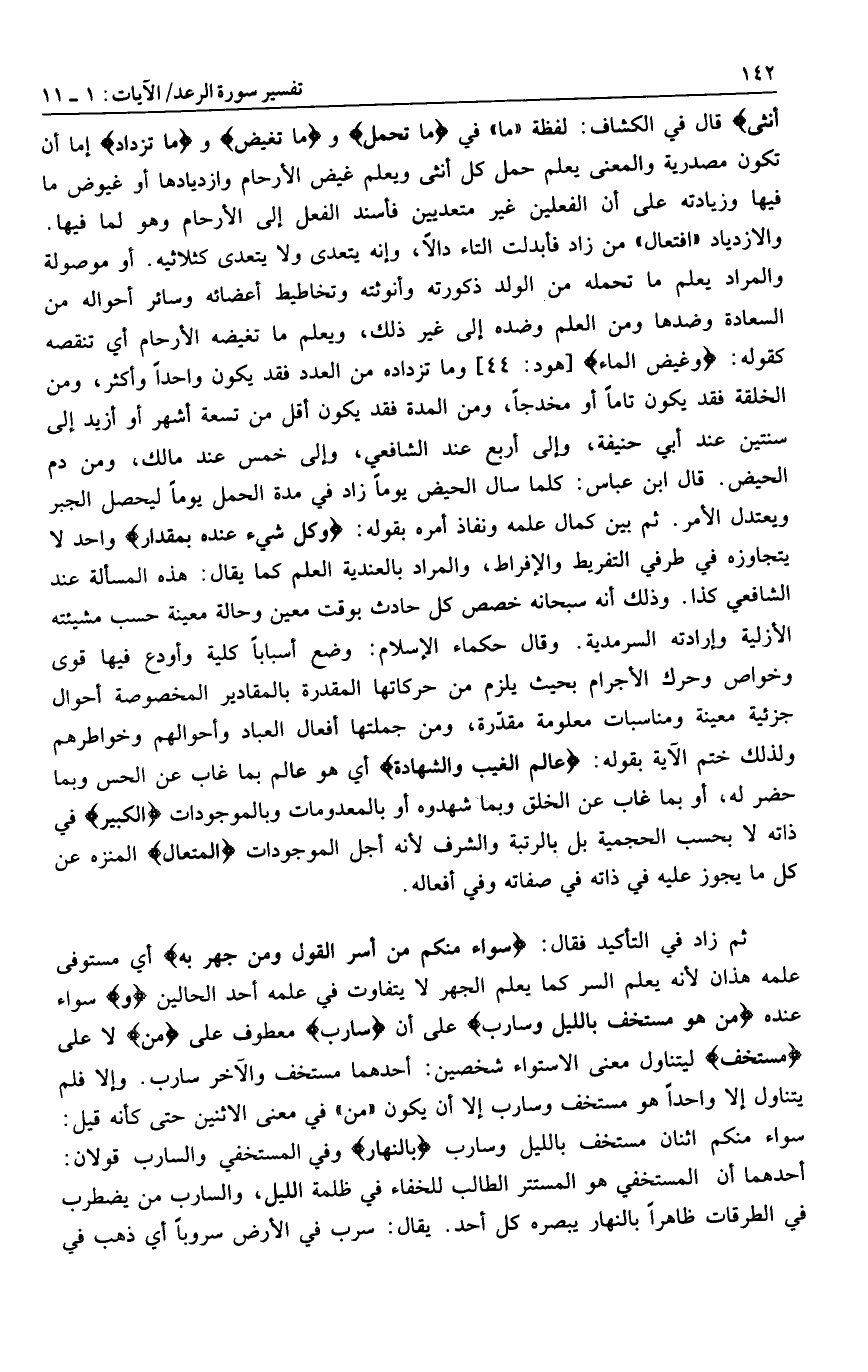 ١٤٢
تفسير سورة الرعد/ الآيات: ١ - ١١
أنثى﴾ قال في الكشاف: لفظة «ما» في ﴿ما تحمل﴾ و ﴿ما تغيض﴾ و ﴿ما تزداد﴾ إما أن
تكون مصدرية والمعنى يعلم حمل كل أنثى ويعلم غيض الأرحام وازديادها أو غيوض ما
فيها وزيادته على أن الفعلين غير متعديين فأسند الفعل إلى الأرحام وهو لما فيها.
والازدياد «افتعال» من زاد فأبدلت التاء دالاً، وإنه يتعدى ولا يتعدى كثلاثيه. أو موصولة
والمراد يعلم ما تحمله من الولد ذكورته وأنوثته وتخاطيط أعضائه وسائر أحواله من
السعادة وضدها ومن العلم وضده إلى غير ذلك، ويعلم ما تغيضه الأرحام أي تنقصه
كقوله: ﴿وغيض الماء﴾ [هود: ٤٤] وما تزداده من العدد فقد يكون واحداً وأكثر، ومن
الخلقة فقد يكون تاماً أو مخدجاً، ومن المدة فقد يكون أقل من تسعة أشهر أو أزيد إلى
سنتين عند أبي حنيفة، وإلى أربع عند الشافعي، وإلى خمس عند مالك، ومن دم
الحيض. قال ابن عباس: كلما سال الحيض يوماً زاد في مدة الحمل يوماً ليحصل الجبر
ويعتدل الأمر. ثم بين كمال علمه ونفاذ أمره بقوله: ﴿وكل شيء عنده بمقدار﴾ واحد لا
يتجاوزه في طرفي التفريط والإفراط، والمراد بالعندية العلم كما يقال: هذه المسألة عند
الشافعي كذا. وذلك أنه سبحانه خصص كل حادث بوقت معين وحالة معينة حسب مشيئته
الأزلية وإرادته السرمدية. وقال حكماء الإسلام: وضع أسباباً كلية وأودع فيها قوى
وخواص وحرك الأجرام بحيث يلزم من حركاتها المقدرة بالمقادير المخصوصة أحوال
جزئية معينة ومناسبات معلومة مقدّرة، ومن جملتها أفعال العباد وأحوالهم وخواطرهم
ولذلك ختم الآية بقوله: ﴿عالم الغيب والشهادة﴾ أي هو عالم بما غاب عن الحس وبما
حضر له، أو بما غاب عن الخلق وبما شهدوه أو بالمعدومات وبالموجودات ﴿الكبير﴾ في
ذاته لا بحسب الحجمية بل بالرتبة والشرف لأنه أجل الموجودات ﴿المتعال﴾ المنزه عن
كل ما يجوز عليه في ذاته في صفاته وفي أفعاله.
ثم زاد في التأكيد فقال: ﴿سواء منكم من أسر القول ومن جهر به﴾ أي مستوفى
علمه هذان لأنه يعلم السر كما يعلم الجهر لا يتفاوت في علمه أحد الحالين ﴿و﴾ سواء
عنده ﴿من هو مستخف بالليل وسارب﴾ على أن ﴿سارب﴾ معطوف على ﴿من﴾ لا على
﴿مستخف﴾ ليتناول معنى الاستواء شخصين: أحدهما مستخف والآخر سارب. وإلا فلم
يتناول إلا واحداً هو مستخف وسارب إلا أن يكون «من» في معنى الاثنين حتى كأنه قيل:
سواء منكم اثنان مستخف بالليل وسارب ﴿بالنهار﴾ وفي المستخفي والسارب قولان:
أحدهما أن المستخفي هو المستتر الطالب للخفاء في ظلمة الليل، والسارب من يضطرب
في الطرقات ظاهراً بالنهار يبصره كل أحد. يقال: سرب في الأرض سروباً أي ذهب في